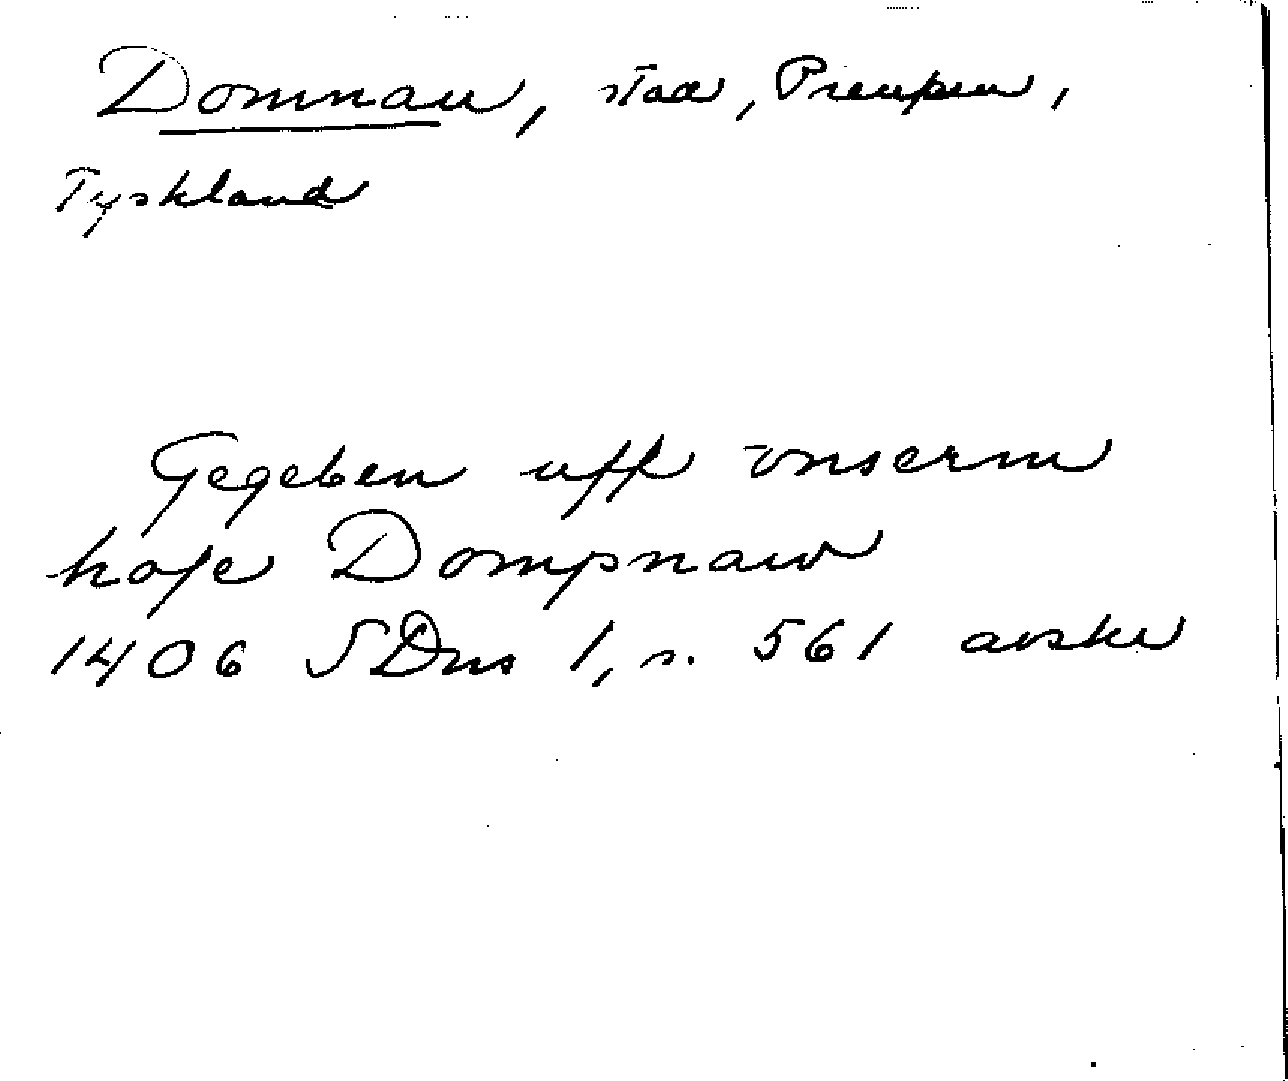 Domnau, stad, Preußen,
Tyskland
Gegeben uff vnserm
hofe Dompnaw
1406 SDns 1, s. 561 avskr